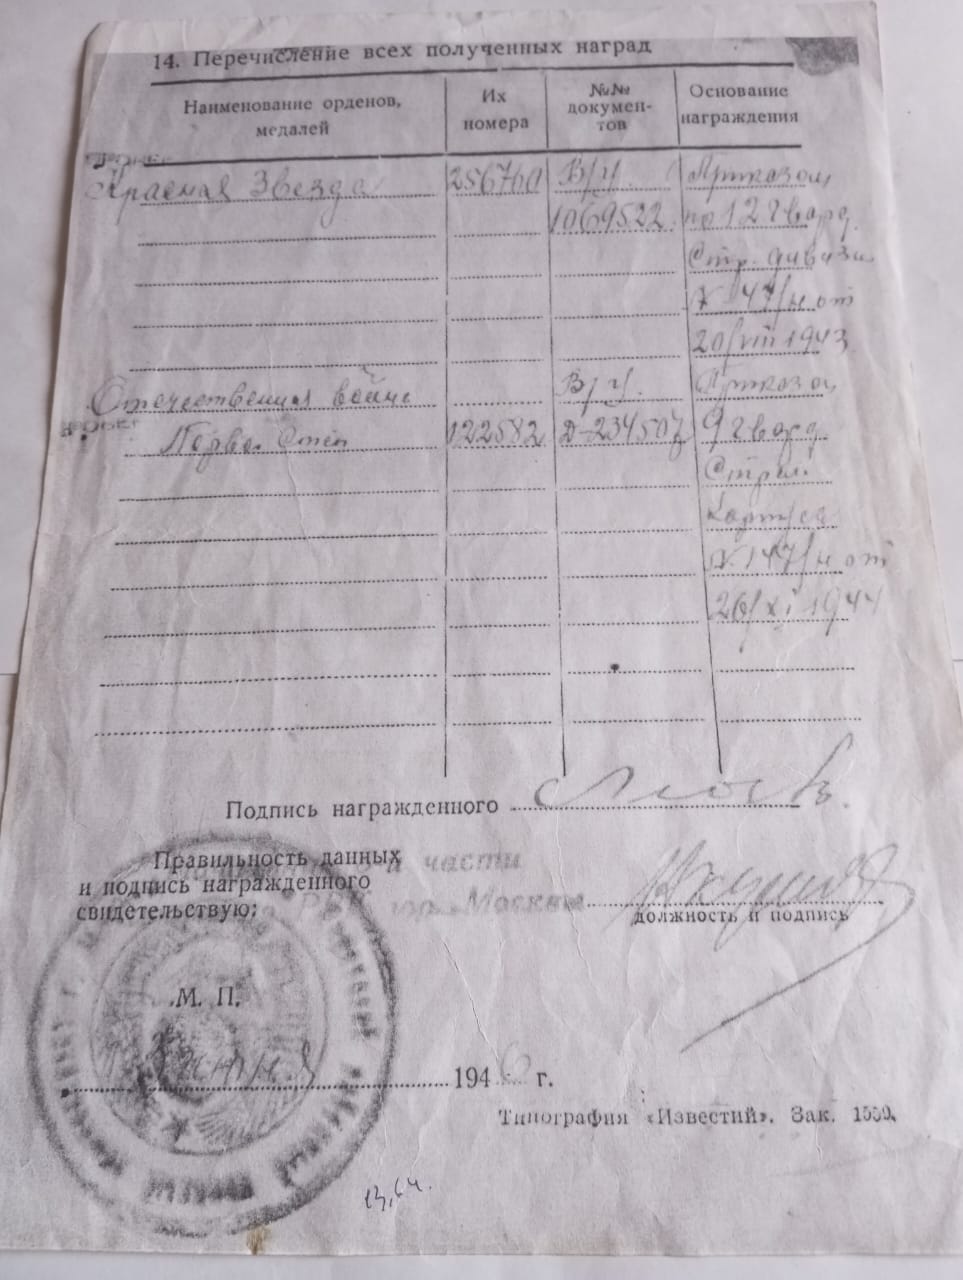 14. Перечисление всех полученных наград
Наименование орденов, медалей
Их номера
№№ документов
Основание награждения
Красная Звезда 256760 В/ч. Приказом
1069522 по 12 гвард.
Стр. дивизи
№ 47/н от
20/VIII 1943
Отечественная войне В/ч. Приказом
Перво. Степ 122582 Д-234507 9 гвард.
Стрел.
Корпуса
№ 147/н от
26/XI 1944
Подпись награжденного
Правильность данных
и подпись награжденного
свидетельствую:
части
гор. Москвы
должность и подпись
М. П.
194 г.
Типография «Известий». Зак.
13,64.